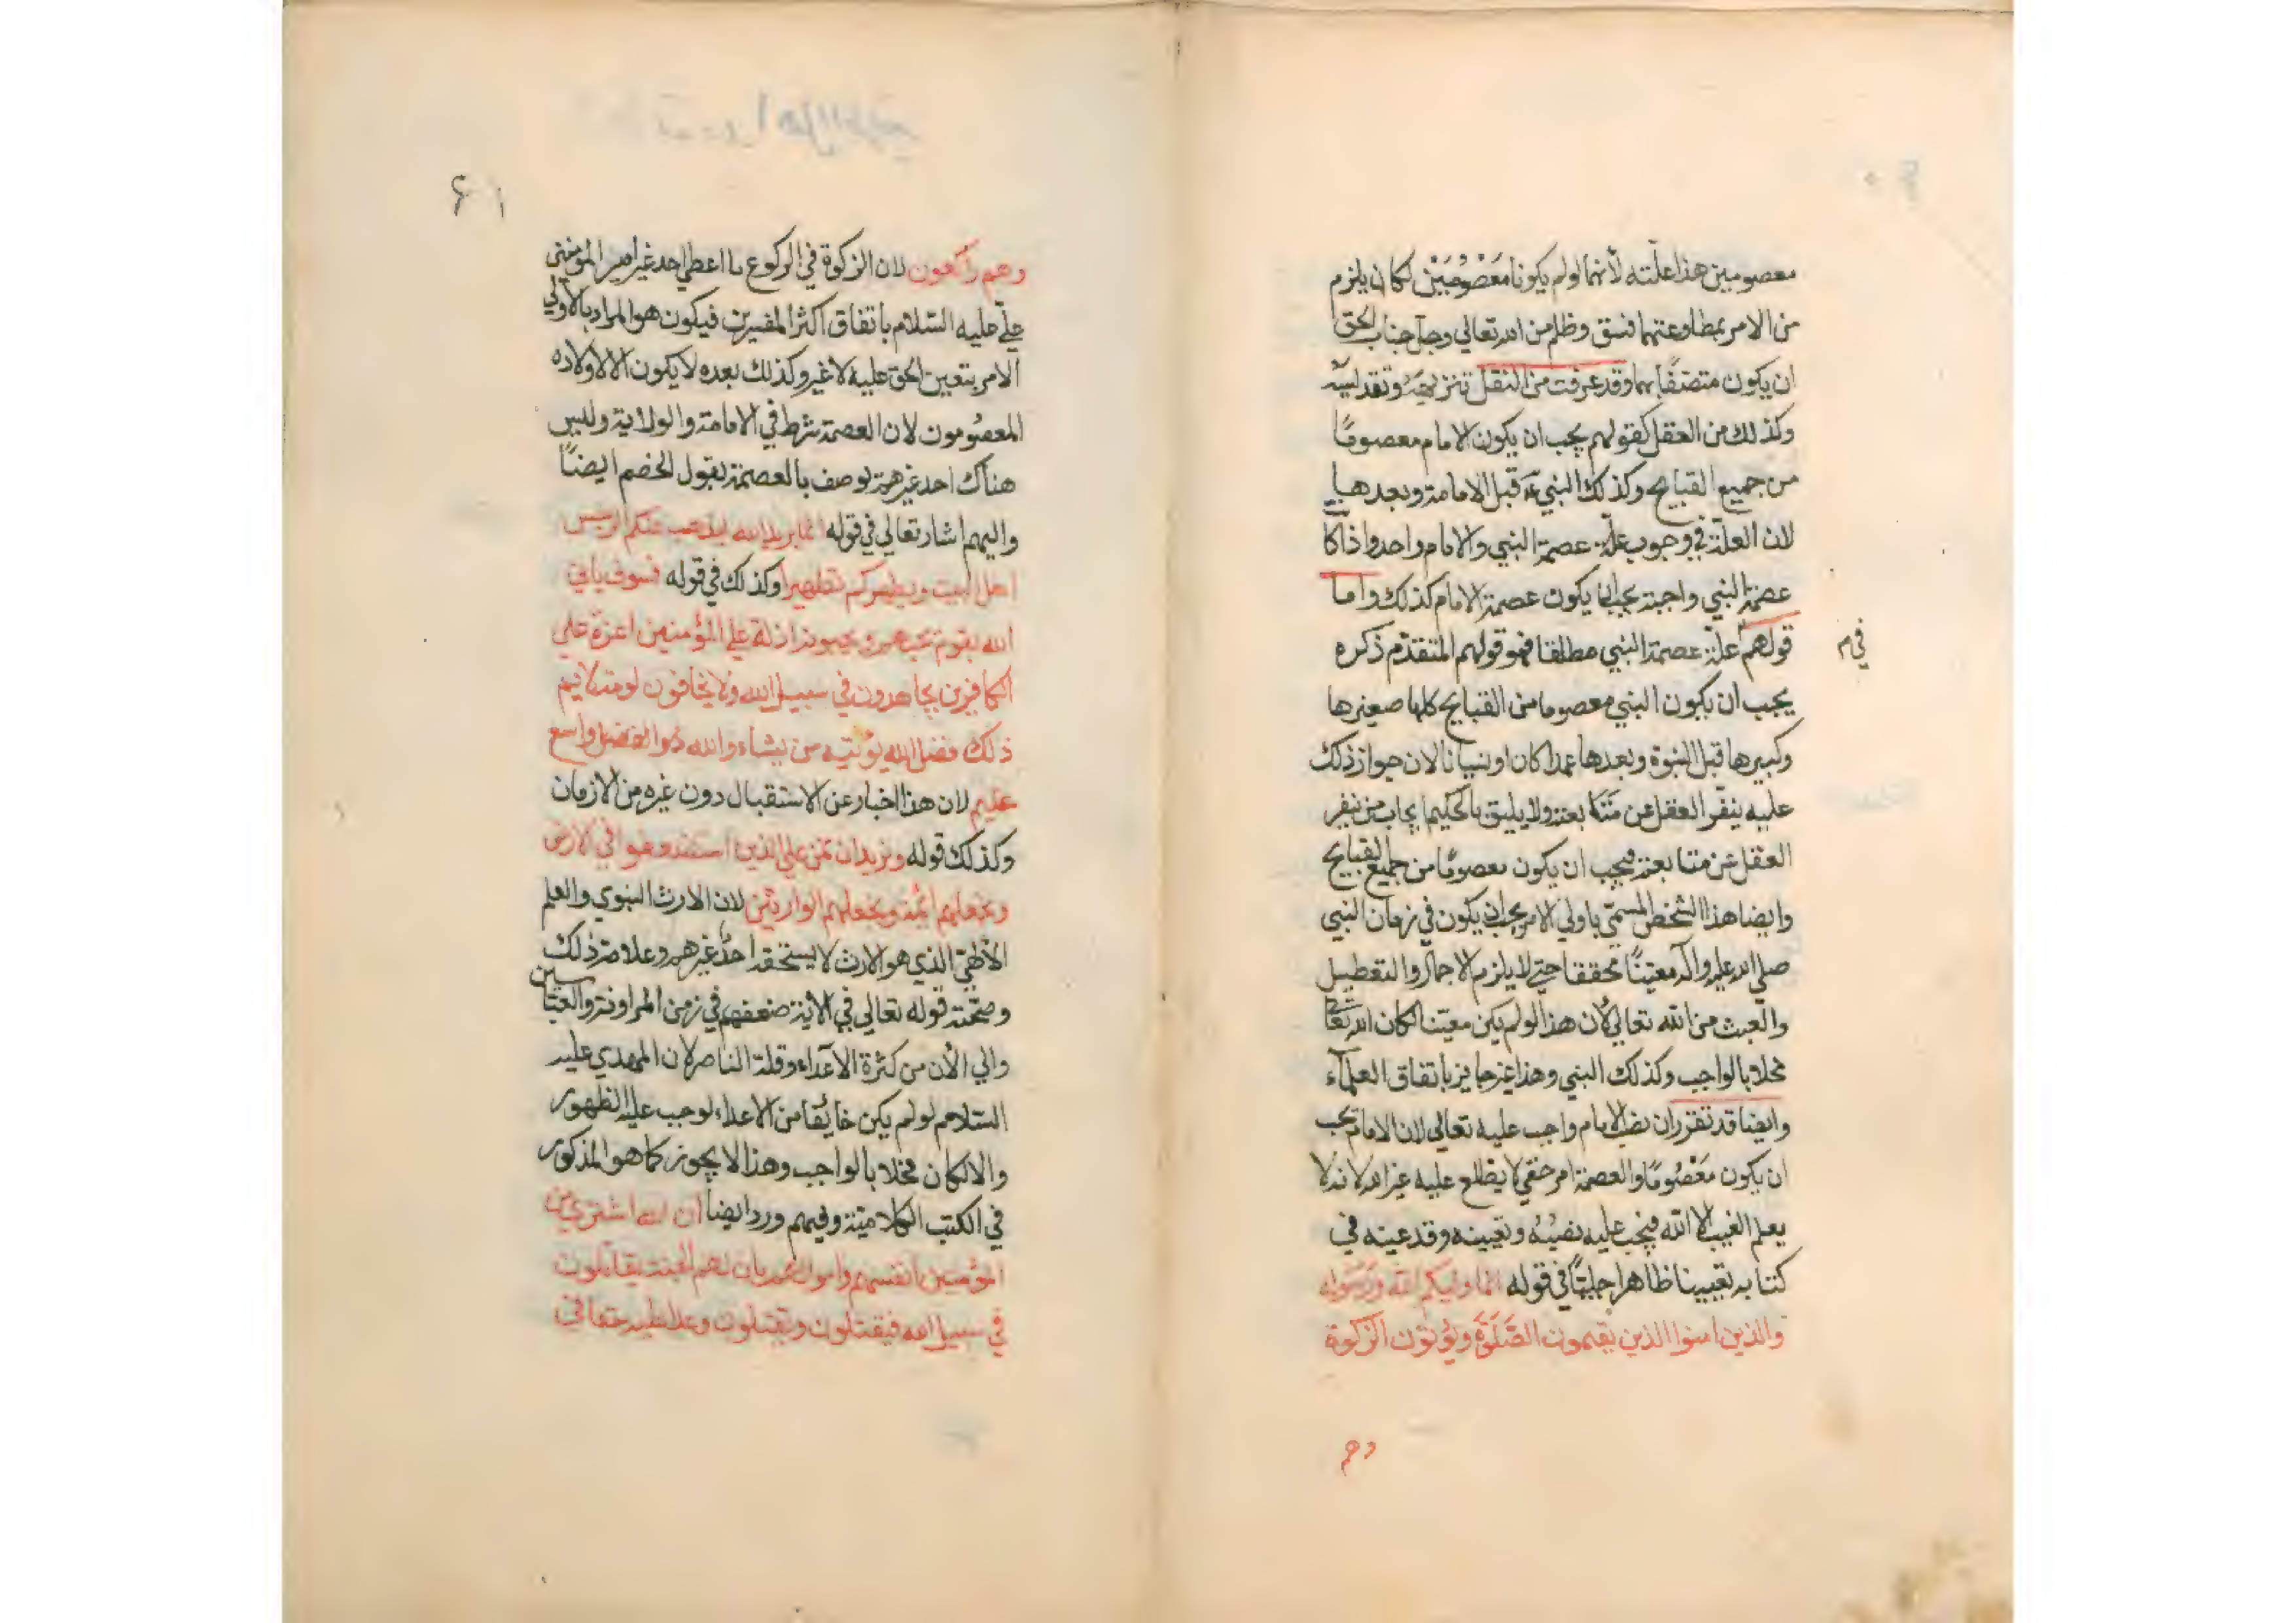 معصومين هذا علّته لأنهما لو لم يكونا مَعْصُومَيْن لكان يلزم
من الامر بمطاوعتهما فسق وظلم من الله تعالى وجلّ جناب الحق
ان يكون متصفًا بهما وقد عرفت من النقل تنزيهه وتقديسه
وكذلك من العقل كقولهم يجب ان يكون الامام معصومًا
من جميع القبايح وكذلك النبي قبل الامامة وبعدها
لان العلّة في وجوب علّة عصمة النبي والامام واحد واذا كا
عصمة النبي واجبة يجب ان يكون عصمة الامام كذلك واما
قولهم علّة عصمة النبي مطلقا فهو قولهم المتقدّم ذكره
في م
يجب ان يكون النبي معصوما من القبايح كلها صغيرها
وكبيرها قبل النبوة وبعدها عمدا كان او نسيانا لان جواز ذلك
عليه ينفّر العقل عن متابعته ولا يليق بالحكيم ايجاب من ينفر
العقل عن متابعته فيجب ان يكون معصومًا من جميع القبايح
وايضا هذا الشخص المسمّى باولي الامر يجب ان يكون في زمان النبي
صلى الله عليه وآله معينًا محققا حتى لا يلزم الاهمال والتعطيل
والعبث من الله تعالى لأن هذا لو لم يكن معيّنا لكان الله تعا
مخلا بالواجب وكذلك النبي وهذا غير جايز باتفاق العلمآء
وايضا قد تقرر ان نصب الامام واجب عليه تعالى لان الامام يجب
ان يكون مَعْصُومًا والعصمة امر خفي لا يطلع عليه غير الله لانه لا
يعلم الغيب الا الله فيجب عليه نصبُهُ وتعيينه وقد عينه في
كتابه تعيينا ظاهرا جليًّا في قوله انما وليكم الله ورسوله
والذين امنوا الذين يقيمون الصَّلَوةَ ويؤتون الزكوة
وهم
۶۱
وهم راكعون لان الزكوة في الركوع ما اعطى احد غير امير المؤمنين
عليّ عليه السّلام باتفاق اكثر المفسرين فيكون هو المراد باولي
الامر بتعيين الحق عليه لا غير وكذلك بعده لا يكون الا لاولاده
المعصُومون لان العصمة شرط في الامامة والولاية وليس
هناك احد غيرهم يوصف بالعصمة بقول الخصم ايضًا
واليهم اشار تعالى في قوله انما يريد الله ليذهب عنكم الرجس
اهل البيت ويطهركم تطهيرا وكذلك في قوله فسوف ياتي
الله بقوم يحبهم ويحبونه اذلة على المؤمنين اعزة على
الكافرين يجاهدون في سبيل الله ولا يخافون لومة لايم
ذلك فضل الله يؤتيه من يشاء والله ذو الفضل واسع
عليم لان هذا اخبار عن الاستقبال دون غيره من الازمان
وكذلك قوله ونريد ان نمن على الذين استضعفوا في الارض
ونجعلهم ائمة ونجعلهم الوارثين لان الارث النبوي والعلم
الالٰهيّ الذي هو الارث لا يستحقه احدٌ غيرهم وعلامة ذلك
وصحّته قوله تعالى في الآية ضعفهم في زمن المراونة والعبّاسين
والي الأن من كثرة الاعداء وقلة الناصر لان المهدي عليه
السّلام لو لم يكن خائفا من الاعداء لوجب عليه الظهور
والا لكان مخلا بالواجب وهذا لا يجوز كما هو المذكور
في الكتب الكلاميّة وفيهم ورد ايضاً ان الله اشترى من
المؤمنين انفسهم واموالهم بان لهم الجنة يقاتلون
في سبيل الله فيقتلون ويقتلون وعدا عليه حقا في